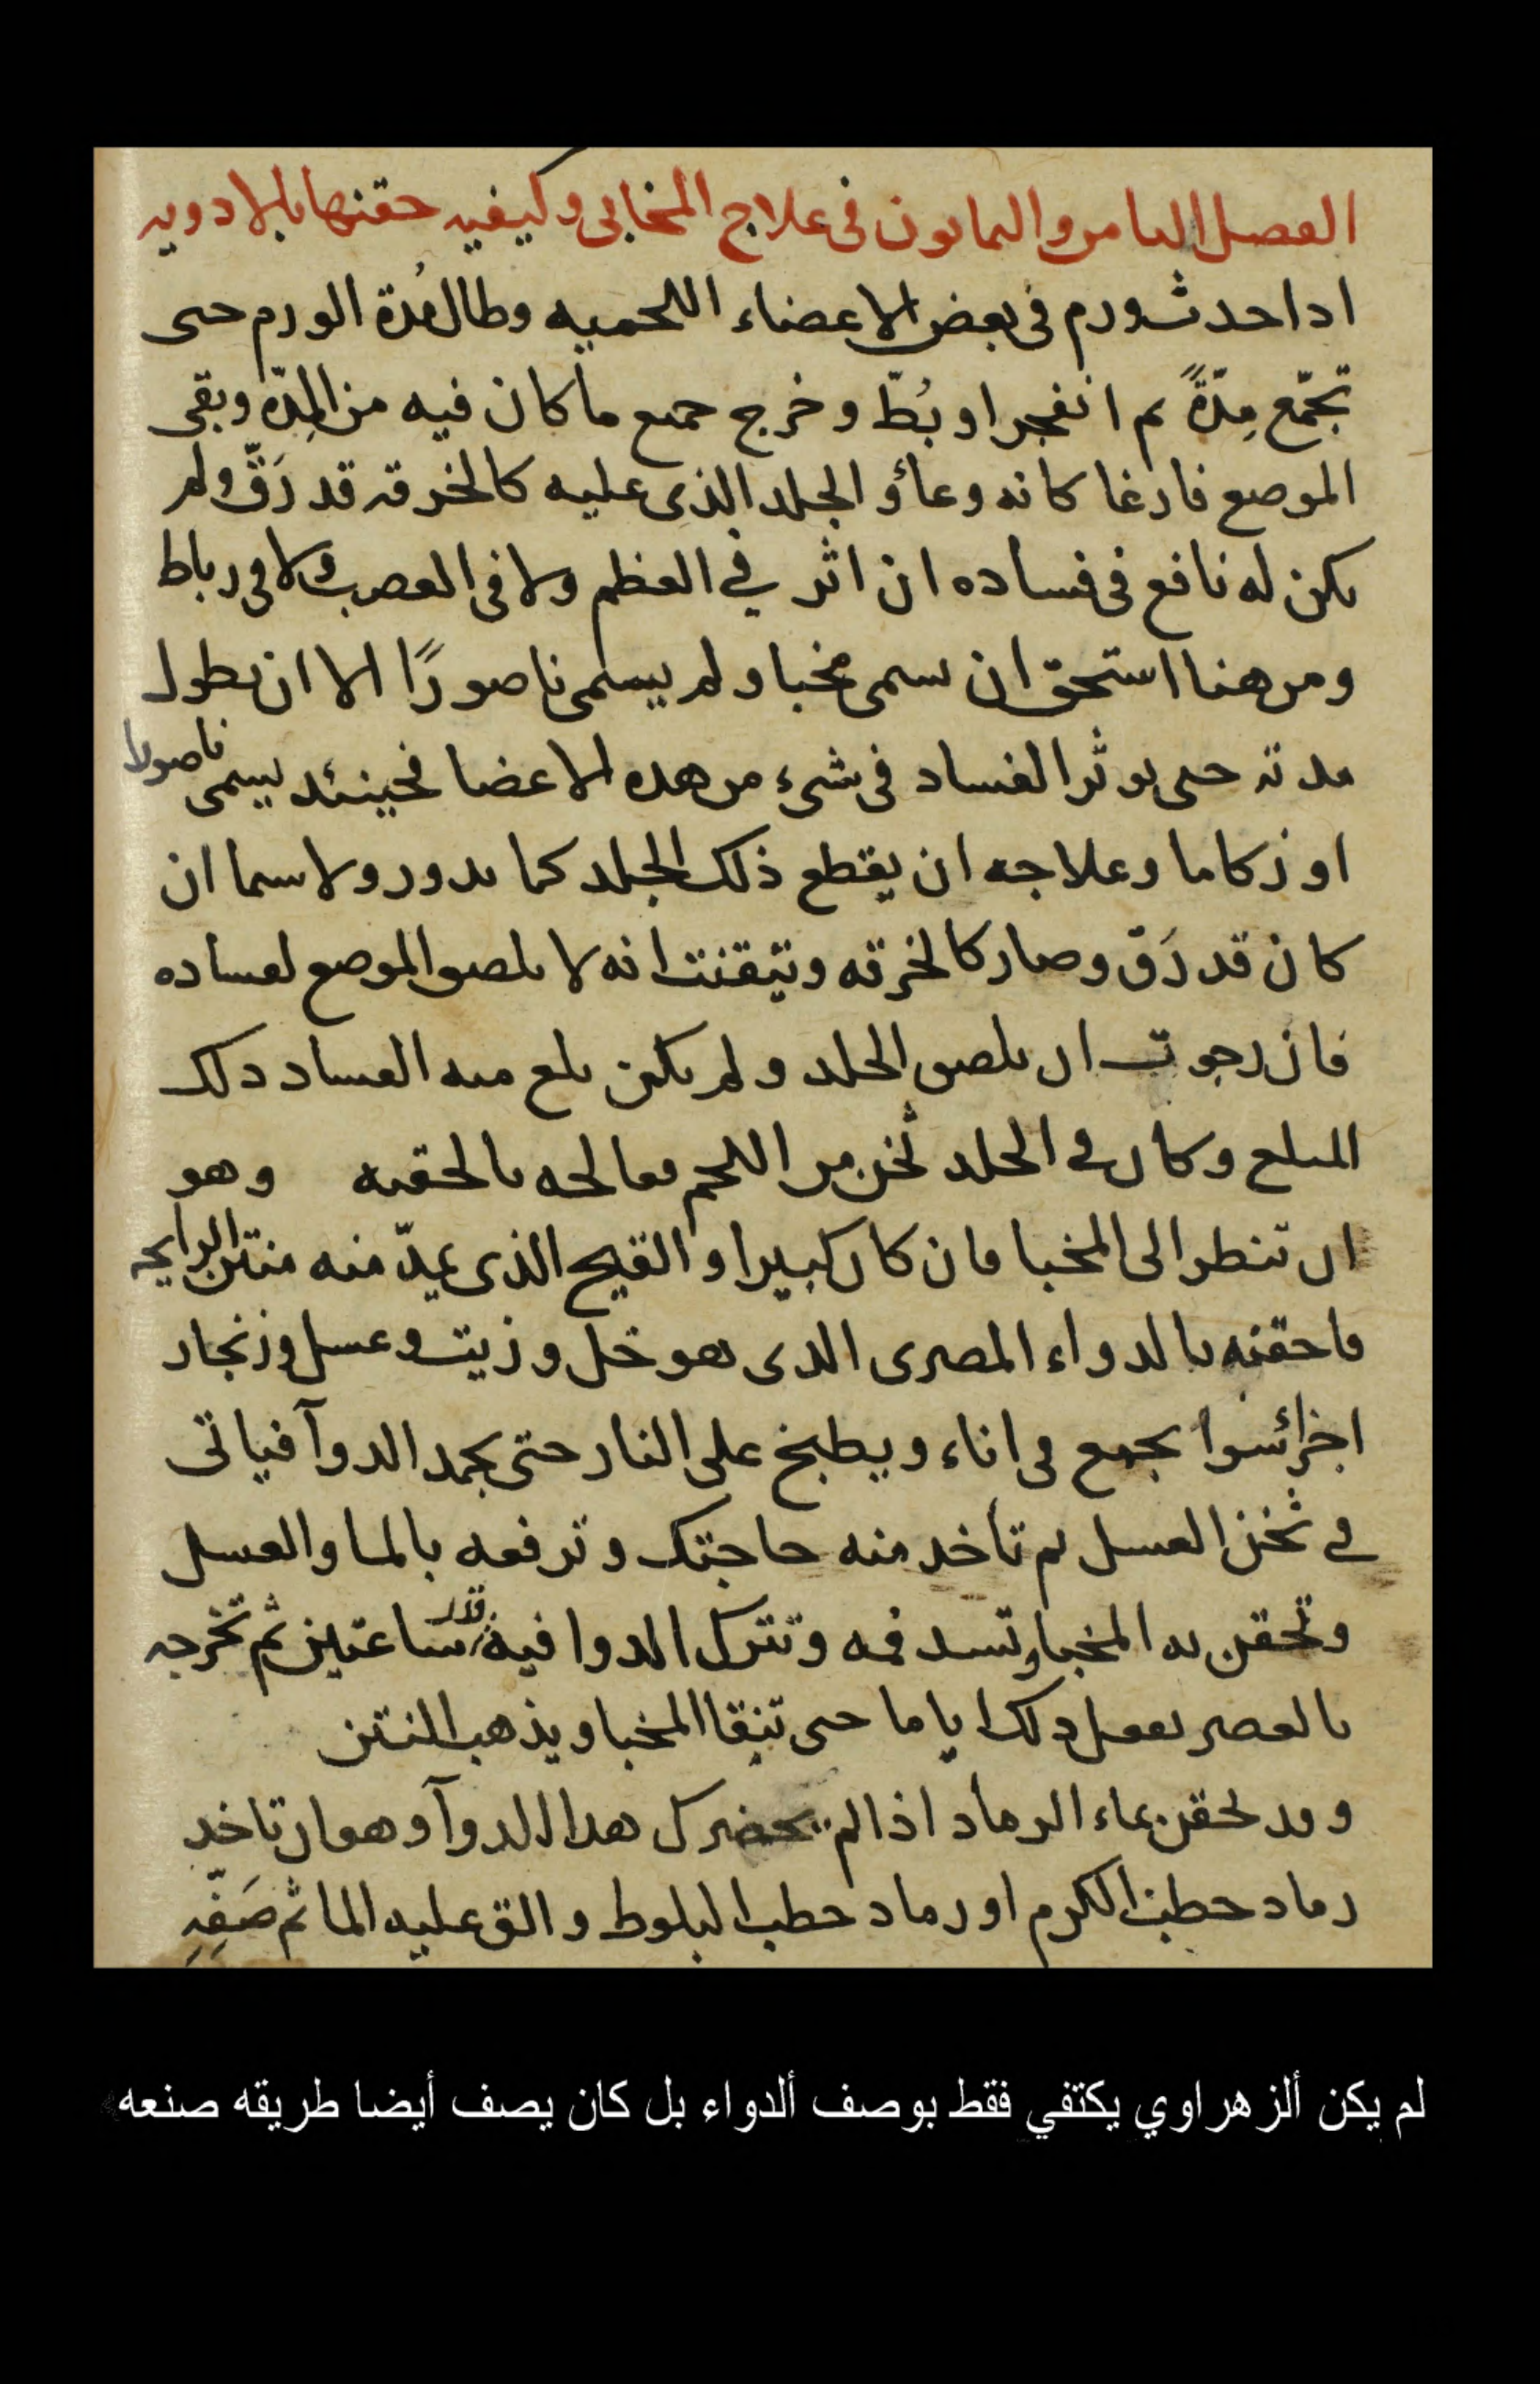 الفصل الثامن والثمانون في علاج المخابى وكيفيه حقنها بالادويه
اذا حدث ورم في بعض الاعضاء اللحميه وطال مُدة الورم حتى
تجمّع مِدّةً ثم انفجر او بُطّ وخرج جميع ما كان فيه من المِدّه وبقى
الموضع فارغا كانه وعاؤ الجلد الذى عليه كالخرقه قد رَقّ ولم
يكن له نافع في فساده ان اثر في العظم ولا في العصب ولا في رباط
ومن هنا استحق ان سمى مخبا ولم يسمى ناصورًا الا ان يطول
مدته حتى يوثر الفساد في شىء من هذه الاعضا فحينئذ يسمى ناصورا
او زكاما وعلاجه ان يقطع ذلك الجلد كما يدور ولا سيما ان
كان قد رَقّ وصار كالخرقه وتيقنت انه لا يلصق الموضع لفساده
فان رجوت ان يلصق الجلد ولم يكن بلغ منه الفساد ذلك
المبلغ وكان في الجلد ثخن من اللحم فعالجه بالحقنه وهو
ان تنظر الى المخبا فان كان كبيرا والقيح الذى يمدّ منه منتن الرايحه
فاحقنه بالدواء المصرى الذى هو خل وزيت وعسل وزنجار
اجزائسوا يجمع في اناء ويطبخ على النار حتى يجمد الدوآ فياتى
في ثخن العسل ثم تأخذ منه حاجتك وترفعه بالما والعسل
وتحقن به المخبا وتسد فمه وتترك الدوا فيه قدر ساعتين ثم تخرجه
بالعصر تفعل ذلك اياما حتى تنقا المخبا ويذهب النتن
وقد يحقن بماء الرماد اذا لم يحضرك هذا الدوآ وهو ان تاخذ
رماد حطب الكرم او رماد حطب البلوط والق عليه الما ثم صَفّهِ
لم يكن ألزهراوي يكتفي فقط بوصف ألدواء بل كان يصف أيضا طريقه صنعه